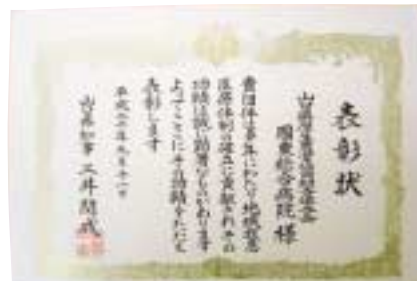 表彰状
山口県厚生農業協同組合連合会
周東総合病院 様
貴団体は多年にわたり地域救急
医療体制の確立に貢献されその
功績は誠に顕著なものがあります
よってここにその功績をたたえ
表彰します
平成二十年九月十一日
山口県知事 二井関成